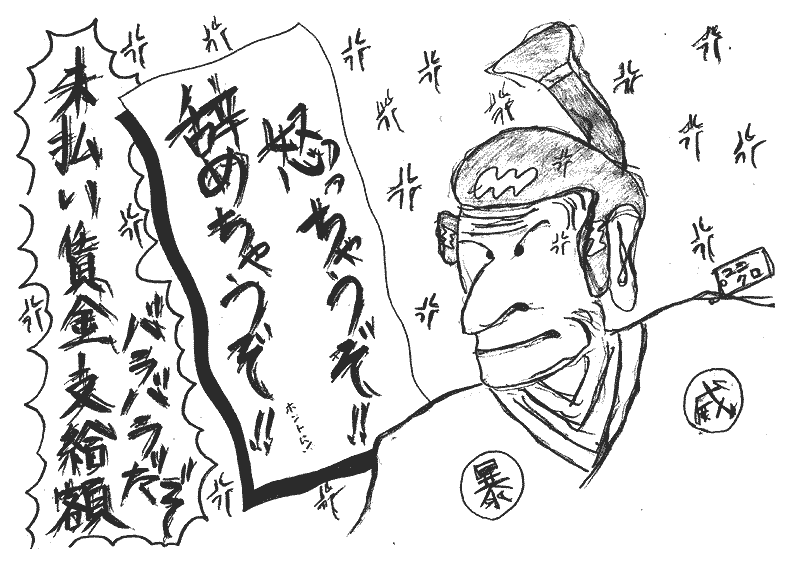 怒っちゃうぞ!!
辞めちゃうぞ!!
ホントに
バラバラだぞ
未払い賃金支給額
暴